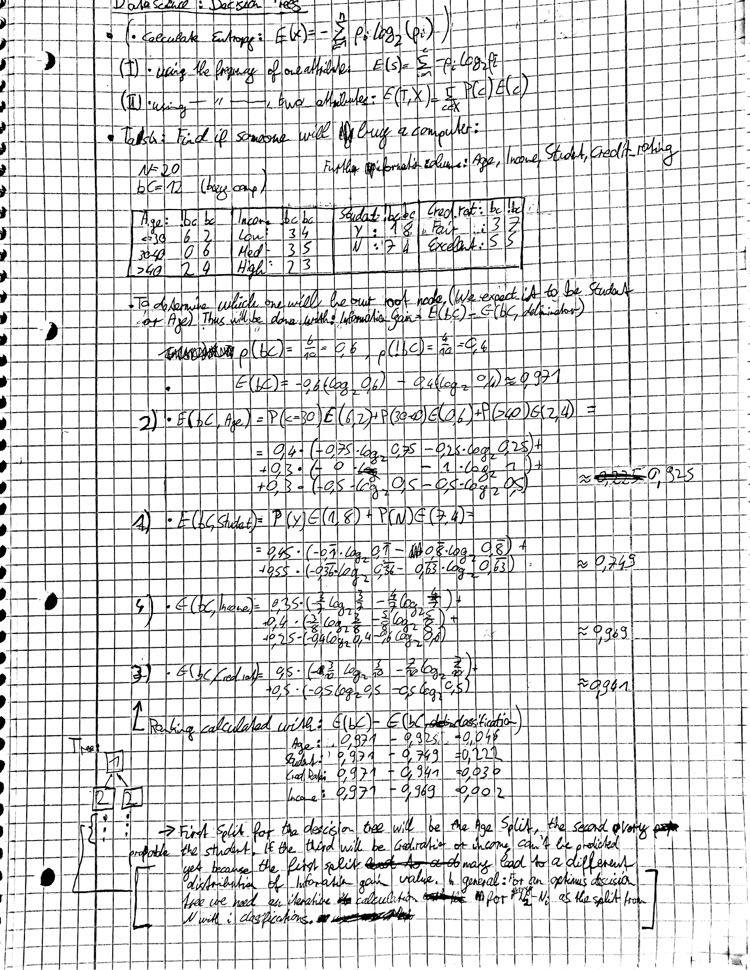 Data Science: Decision Trees
• ( • Calculate Entropy: E(X) = - Σ pi log2(pi) )
(I) • using the frequency of one attribute: E(S) = Σ -pi log2 pi
(II) • using — " — , two attributes: E(T,X) = Σ P(c) E(c)
• Task: Find if someone will buy a computer:
N = 20
Further information column: Age, Income, Student, Credit_rating
bC = 12 (buys comp)
Age: !bc bc Income !bc bc Student: !bc bc Cred.rat: bc !bc
<=30 6 2 Low: 3 4 Y : 1 8 Fair : 3 7
30-40 0 6 Med - 3 5 N : 7 4 Excelent: 5 5
>40 2 4 High: 2 3
• To determine which one will be our root node, (We expect it to be Student
or Age) Thus will be done with: Information gain = E(bC) - E(bC, deliminator)
p(bC) = 6/10 = 0,6 , p(!bC) = 4/10 = 0,4
• E(bC) = -0,6(log2 0,6) - 0,4(log2 0,4) ≈ 0,971
2) • E(bC, Age) = P(<=30) E(6,2) + P(30-40) E(0,6) + P(>40) E(2,4) =
= 0,4 · (-0,75 · log2 0,75 - 0,25 · log2 0,25) +
+0,3 · (- 0 · - 1 · log2 1) +
+0,3 · (-0,5 · log2 0,5 - 0,5 · log2 0,5) ≈ 0,925
1) • E(bC, Student) = P(Y) E(1,8) + P(N) E(7,4) =
= 0,45 · (-0,1 · log2 0,1 - 0,8 · log2 0,8) +
+0,55 · (-0,36 · log2 0,36 - 0,63 · log2 0,63) ≈ 0,749
4) • E(bC, Income) = 0,35 · (-3/7 log2 3/7 - 4/7 log2 4/7) +
+0,4 · (-3/8 log2 3/8 - 5/8 log2 5/8) +
+0,25 · (-0,4 log2 0,4 - 0,6 log2 0,6) ≈ 0,969
3) • E(bC, Cred rat) = 0,5 · (-3/10 log2 3/10 - 7/10 log2 7/10) +
+0,5 · (-0,5 log2 0,5 - 0,5 log2 0,5) ≈ 0,941
Ranking calculated with: E(bC) - E(bC, classification)
Age: 0,971 - 0,925 = 0,046
Student: 0,971 - 0,749 = 0,222
Cred Rat: 0,971 - 0,941 = 0,030
Income: 0,971 - 0,969 = 0,002
Tree:
1
2 2
→ First Split for the descision tree will be the Age Split, the second very
propable the student. If the third will be Cedratio or income, can't be predicted
yet because the first split may lead to a different
distribution of Information gain value. In general: For an optimus descision
tree we need an iterative calculation for - Ni as the split from
N with i clasifications.